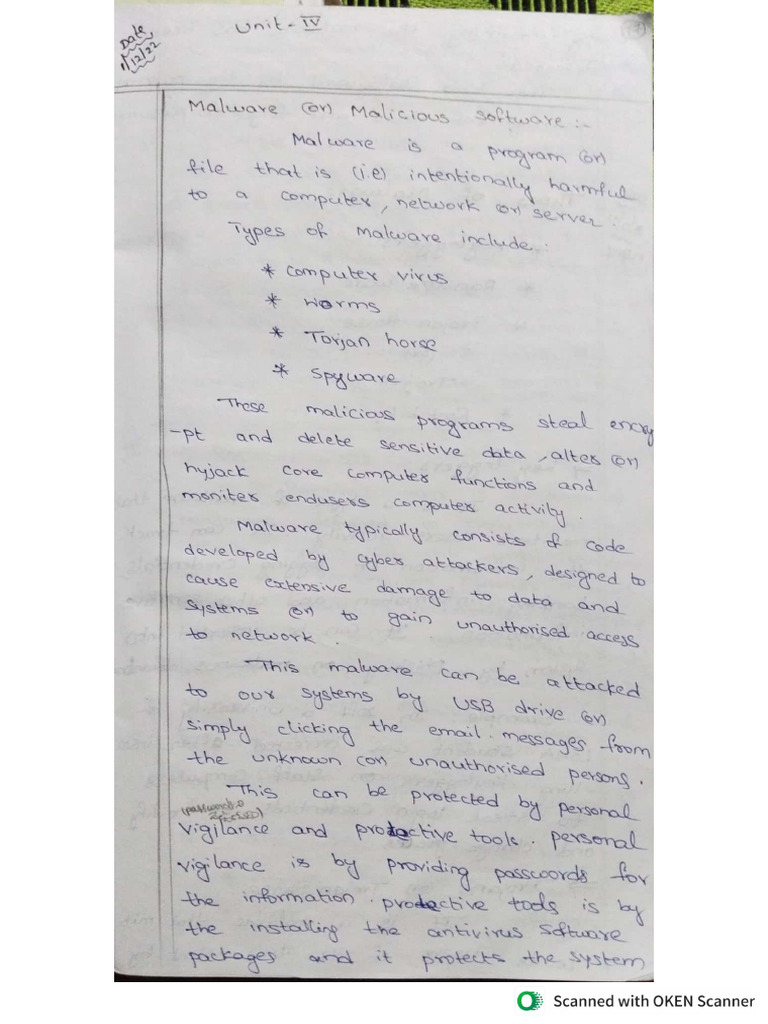 Date
1/12/22
Unit - IV
Malware (or) Malicious software :-
Malware is a program (or)
file that is (i.e) intentionally harmful
to a computer, network (or) server.
Types of Malware include:
* Computer virus
* Worms
* Torjan horse
* Spyware
These malicious programs steal encry
-pt and delete sensitive data, alter (or)
hyjack core computer functions and
moniter endusers computer activity.
Malware typically consists of code
developed by cyber attackers, designed to
cause extensive damage to data and
systems (or) to gain unauthorised access
to network.
This malware can be attacked
to our systems by USB drive (or)
simply clicking the email messages from
the unknown (or) unauthorised persons.
This can be protected by personal
vigilance and protective tools. personal
vigilance is by providing passwords for
the information. protective tools is by
the installing the antivirus software
packages and it protects the system
Scanned with OKEN Scanner